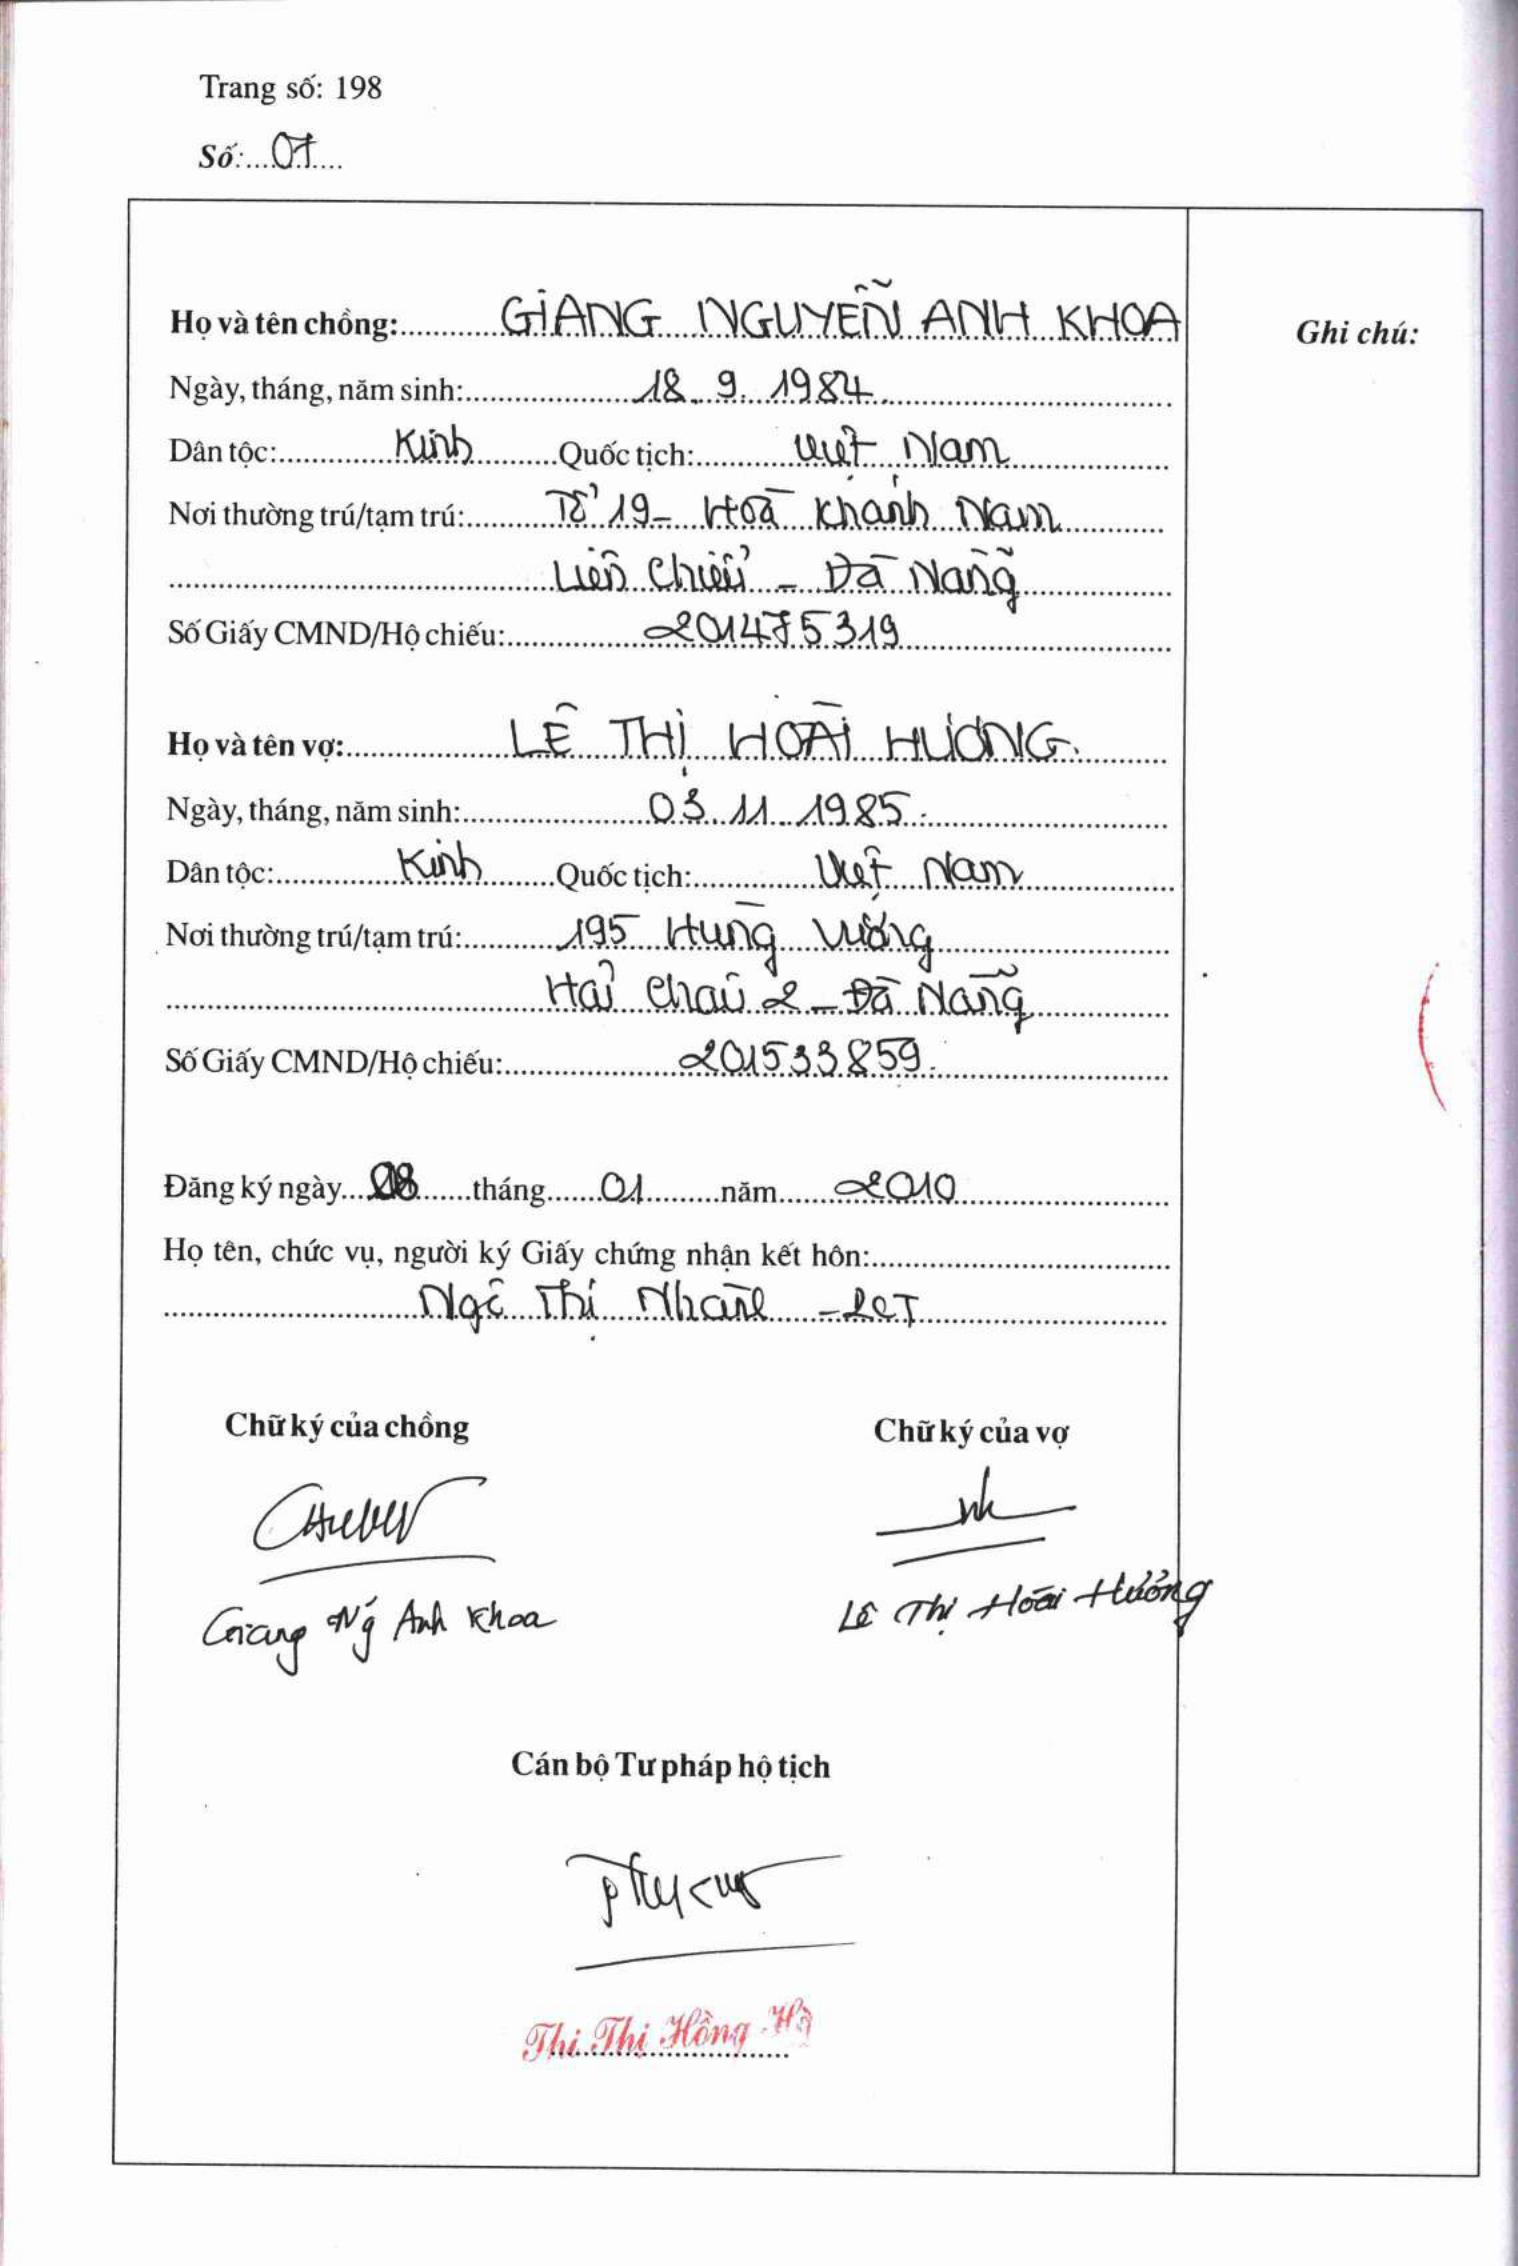 Trang số: 198
Số: 07
Họ và tên chồng: GIANG NGUYỄN ANH KHOA
Ghi chú:
Ngày, tháng, năm sinh: 18. 9. 1984
Dân tộc: Kinh Quốc tịch: Việt Nam
Nơi thường trú/tạm trú: Tổ 19 - Hoà Khánh Nam
Liên Chiểu - Đà Nẵng
Số Giấy CMND/Hộ chiếu: 201475319
Họ và tên vợ: LÊ THỊ HOÀI HƯƠNG
Ngày, tháng, năm sinh: 03. 11. 1985
Dân tộc: Kinh Quốc tịch: Việt Nam
Nơi thường trú/tạm trú: 195 Hùng Vương
Hải Châu 2 - Đà Nẵng
Số Giấy CMND/Hộ chiếu: 201533859
Đăng ký ngày 08 tháng 01 năm 2010
Họ tên, chức vụ, người ký Giấy chứng nhận kết hôn:
Ngô Thị Nhàn - PCT
Chữ ký của chồng Chữ ký của vợ
Giang Ng Anh Khoa Lê Thị Hoài Hương
Cán bộ Tư pháp hộ tịch
Thi Thị Hồng Hà